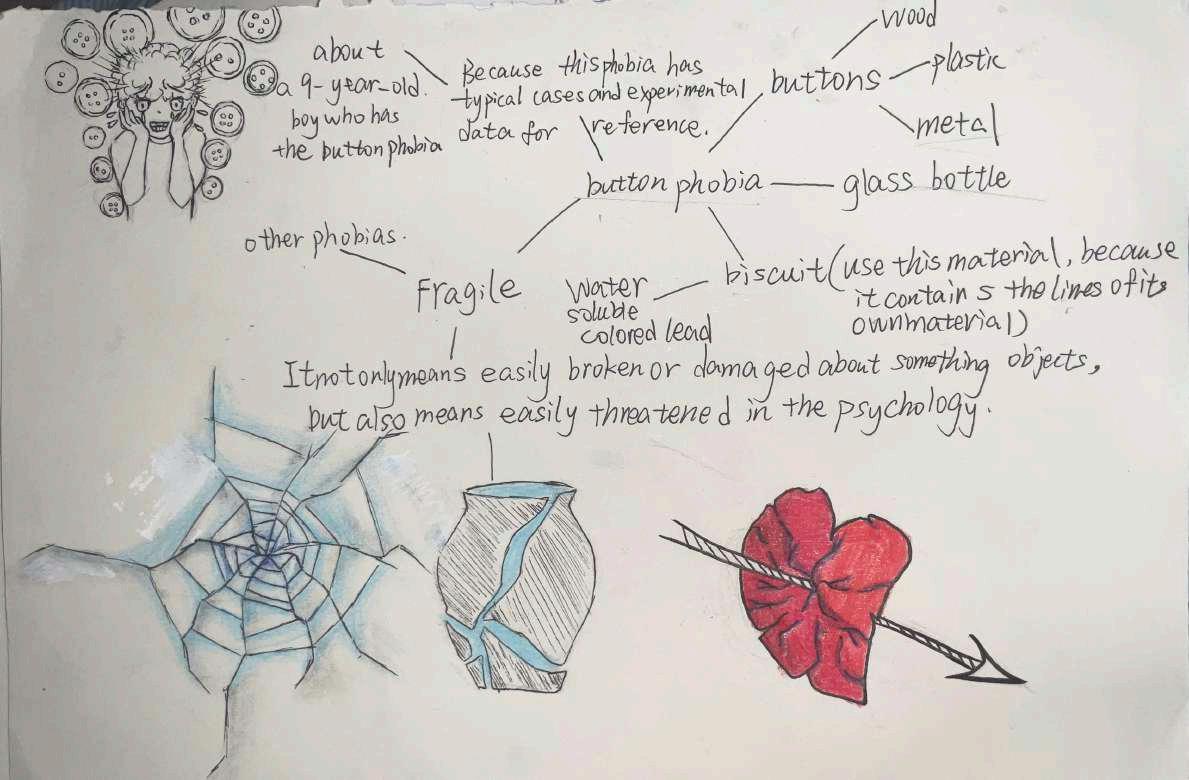 about
a 9-year-old.
boy who has
the button phobia
Because this phobia has
typical cases and experimental
data for reference.
buttons
wood
plastic
metal
button phobia
glass bottle
other phobias.
Fragile
water
soluble
colored lead
biscuit (use this material, because
it contains the lines of its
own material)
It not only means easily broken or damaged about something objects,
but also means easily threatened in the psychology.